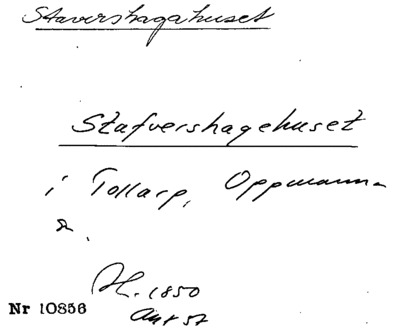 Stavershagahuset
Stafvershagehuset
i Tollarp, Oppmanna
s.
Hf. 1850
Nr 10856